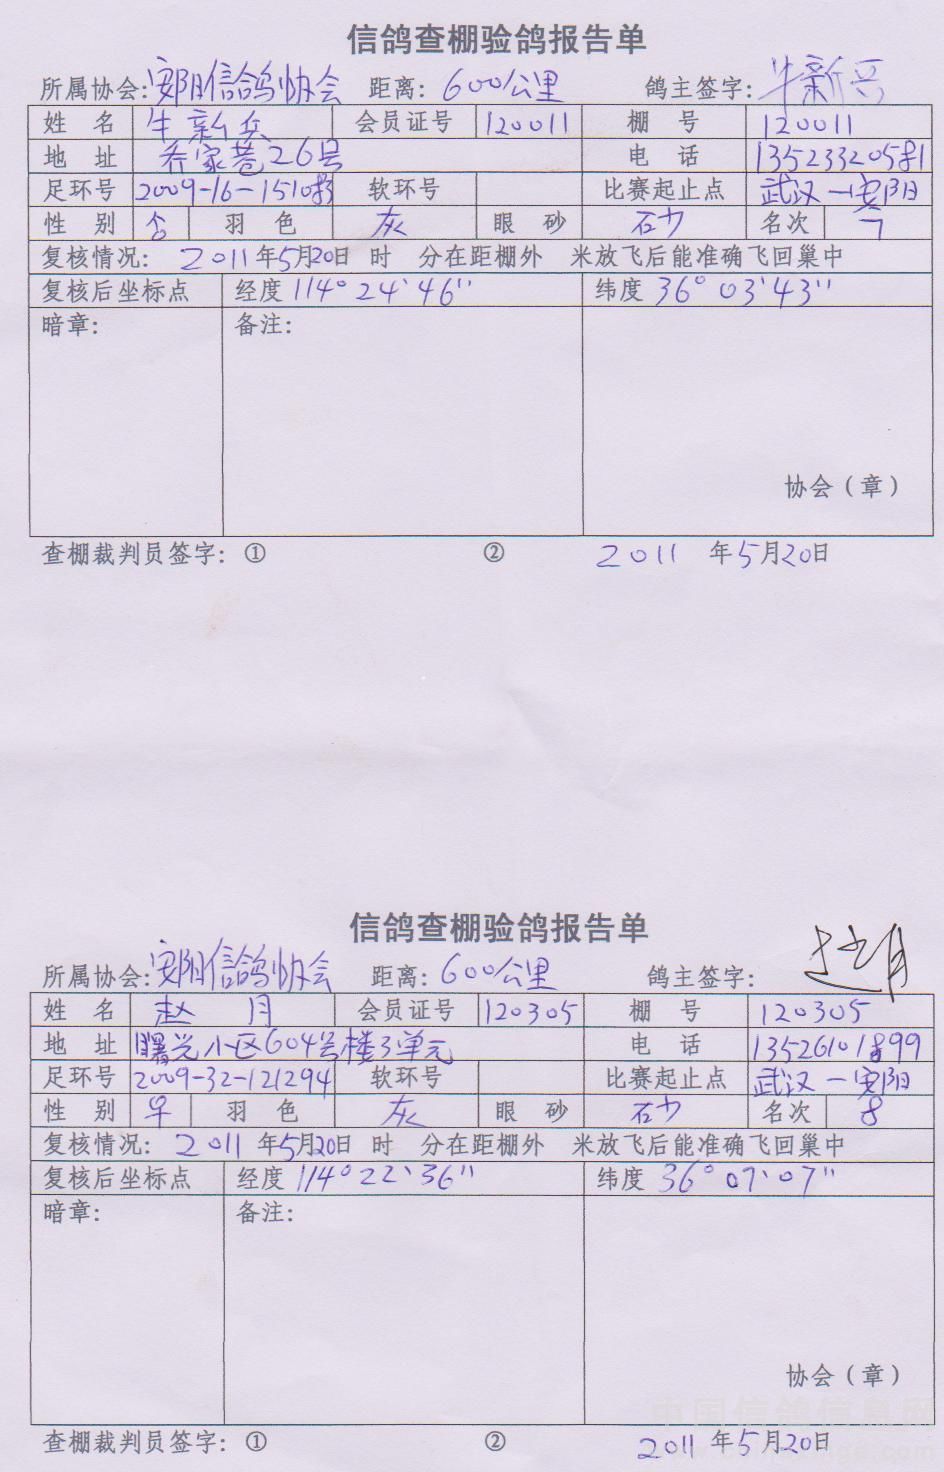 信鸽查棚验鸽报告单
所属协会:安阳信鸽协会 距离: 600公里 鸽主签字: 牛新兵
姓 名 牛新兵 会员证号 120011 棚 号 120011
地 址 乔家巷26号 电 话
足环号 软环号 比赛起止点 武汉—安阳
性 别 羽 色 灰 眼 砂 石少 名次 7
复核情况: 2011年5月20日 时 分在距棚外 米放飞后能准确飞回巢中
复核后坐标点 经度 114°24'46" 纬度 36°03'43"
暗章: 备注:
协会（章）
查棚裁判员签字: ① ② 2011 年5月20日
信鸽查棚验鸽报告单
所属协会:安阳信鸽协会 距离: 600公里 鸽主签字: 赵月
姓 名 赵 月 会员证号 120305 棚 号 120305
地 址 曙光小区604号楼3单元 电 话 13526101899
足环号 2009-32-121294 软环号 比赛起止点 武汉—安阳
性 别 羽 色 灰 眼 砂 石少 名次 8
复核情况: 2011年5月20日 时 分在距棚外 米放飞后能准确飞回巢中
复核后坐标点 经度 114°22'36" 纬度 36°07'07"
暗章: 备注:
协会（章）
中国信鸽信息网
查棚裁判员签字: ① ② 2011 年5月20日